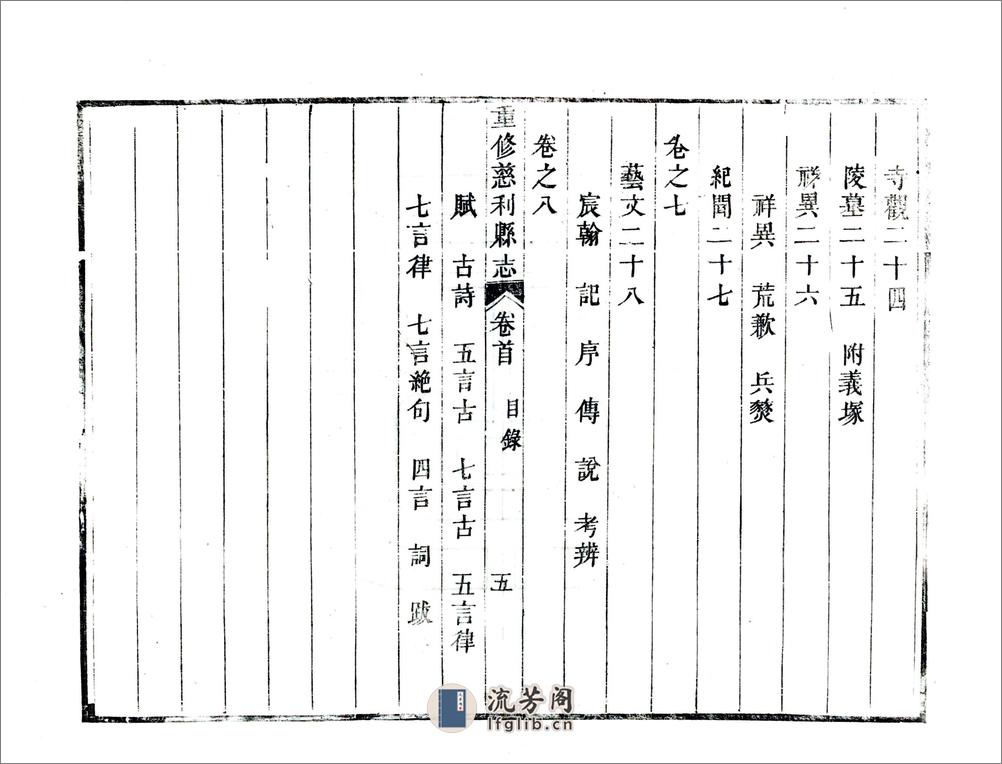 寺觀二十四
陵墓二十五　附義塚
祥異二十六
祥異　荒歉　兵燹
紀聞二十七
卷之七
藝文二十八
宸翰　記　序　傳　說　考辨
卷之八
重修慈利縣志　卷首　目錄　五
賦　古詩　五言古　七言古　五言律
七言律　七言絕句　四言　詞　跋
流芳阁
lfglib.cn